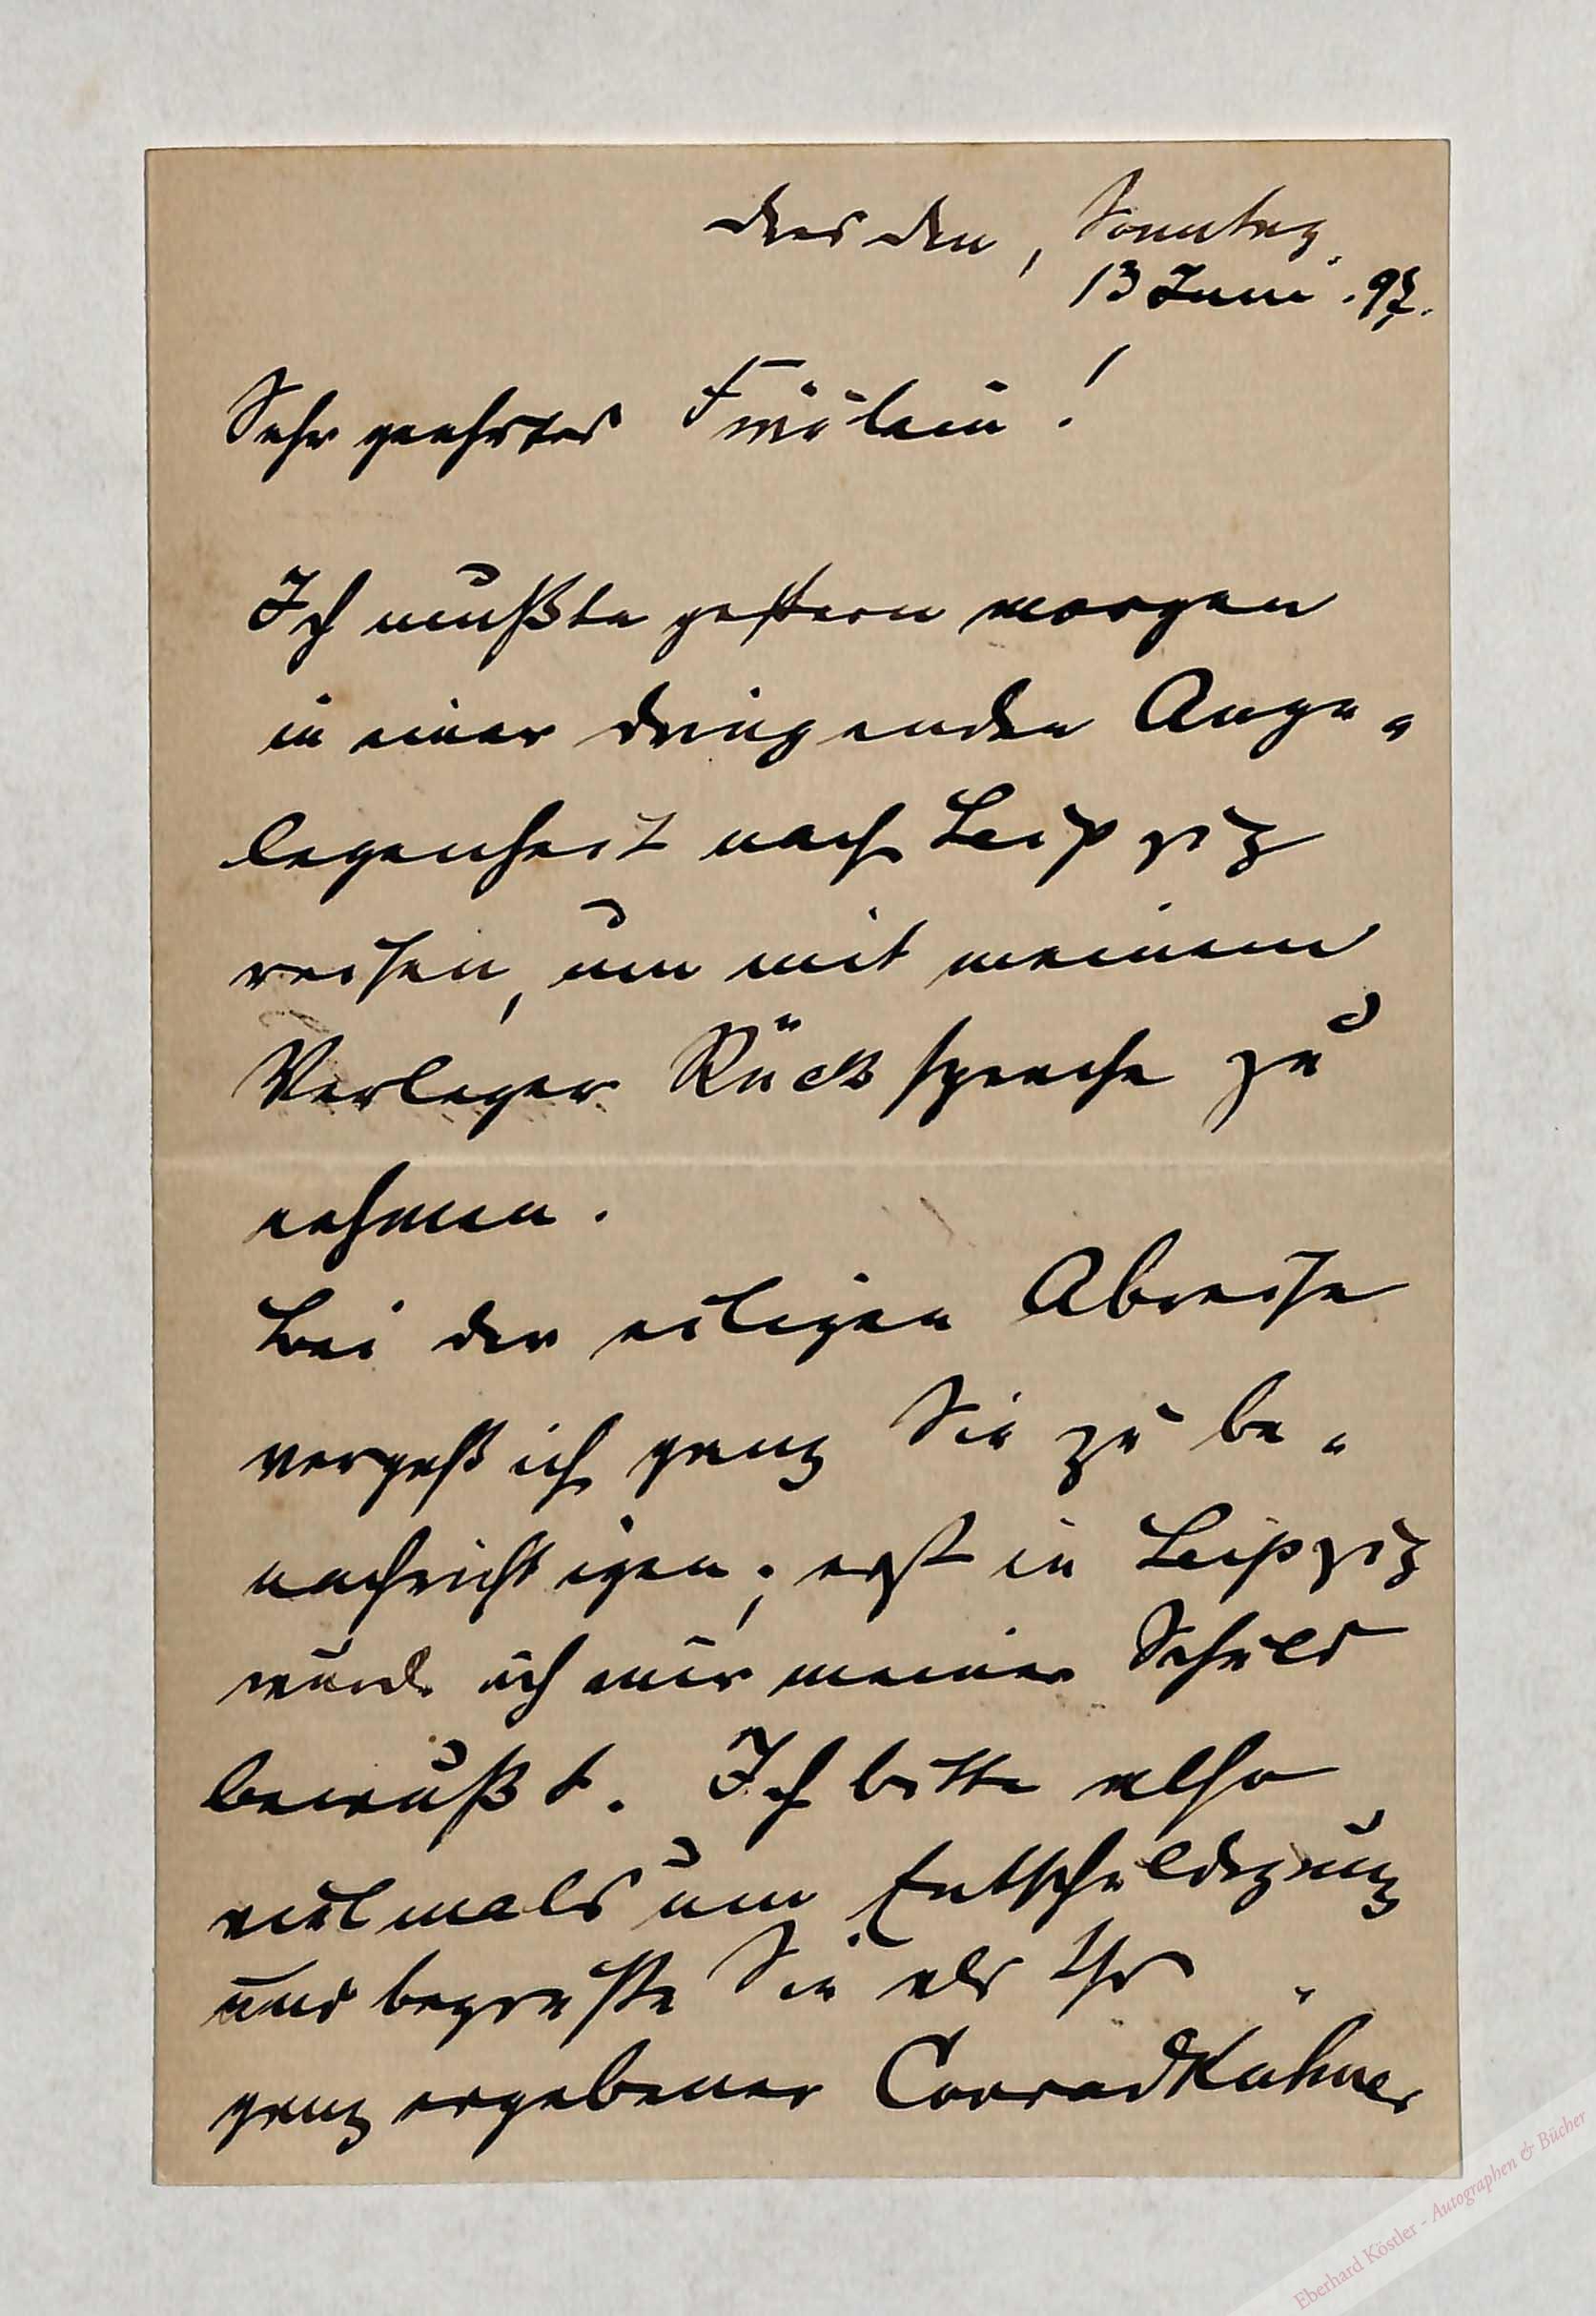 Dresden, Sonntag
13 Juni. 97.
Sehr geehrtes Fräulein!
Ich mußte gestern morgen
in einer dringenden Ange-
legenheit nach Leipzig
reisen, um mit meinem
Verleger Rücksprache zu
nehmen.
Bei der eiligen Abreise
vergaß ich ganz Sie zu be-
nachrichtigen; erst in Leipzig
wurde ich mir meiner Schuld
bewußt. Ich bitte also
vielmals um Entschuldigung
und begrüße Sie als Ihr
ganz ergebener Conrad Kühner
Eberhard Köstler - Autographen & Bücher